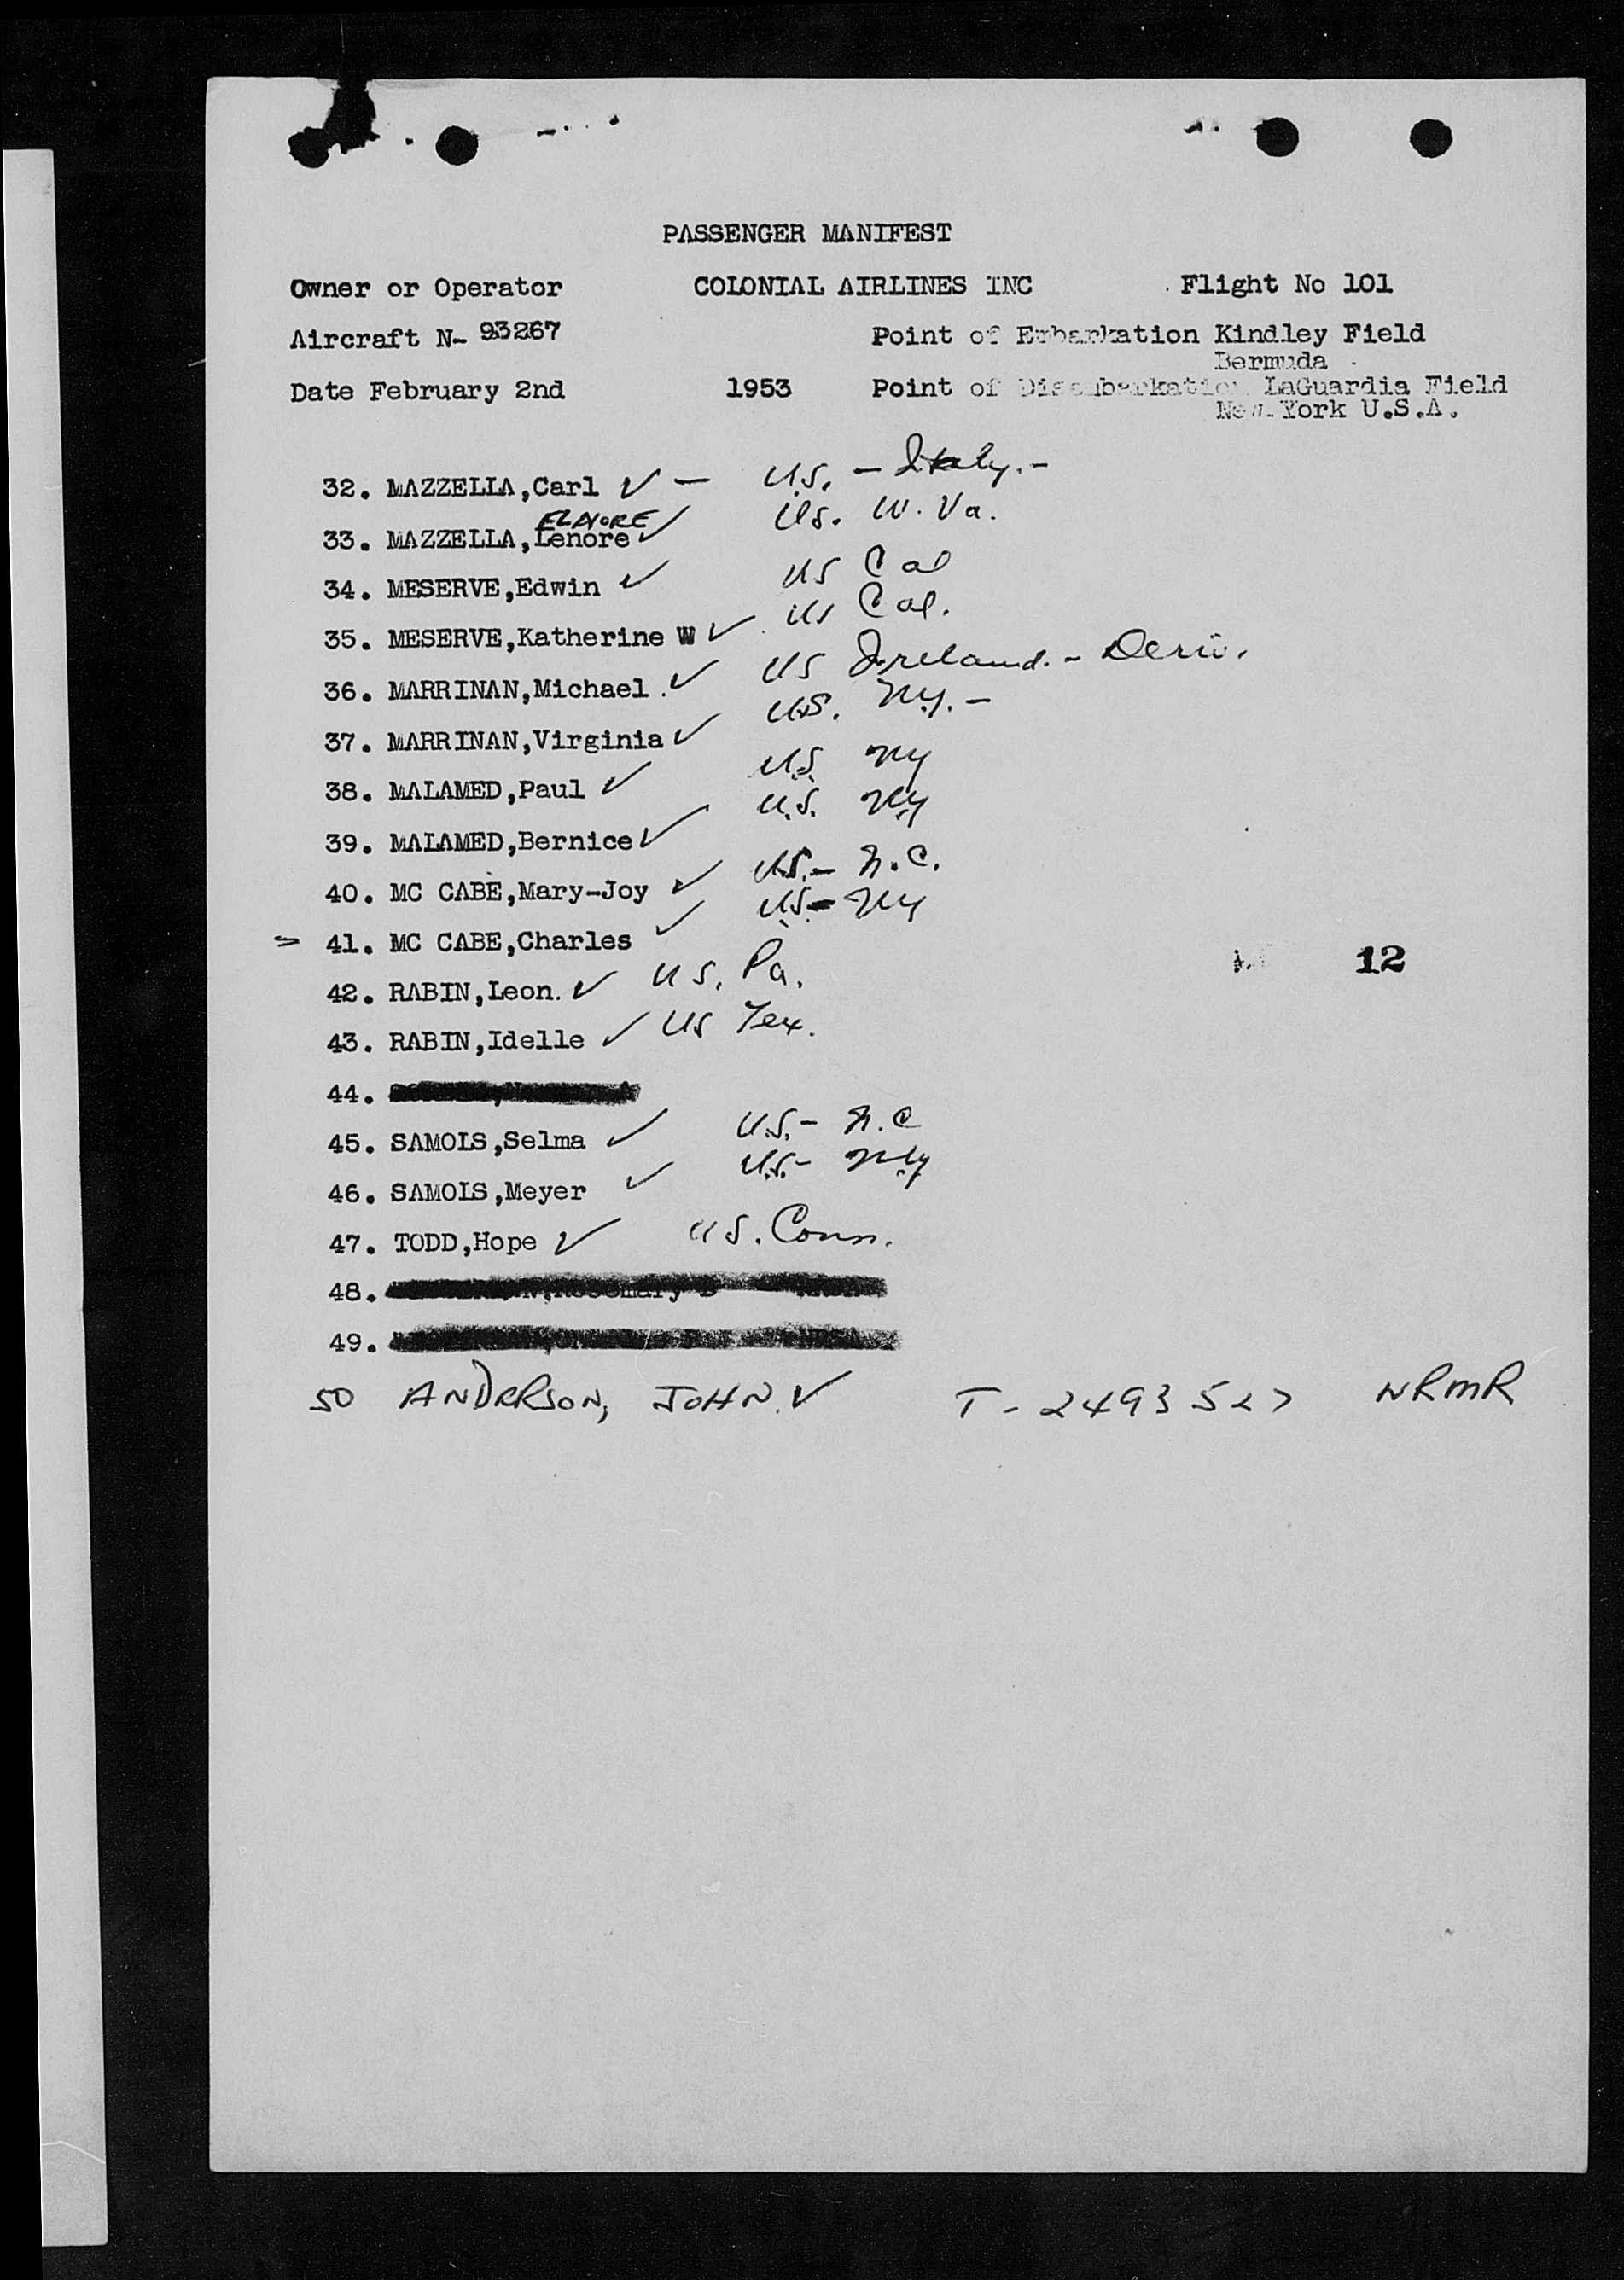 PASSENGER MANIFEST
Owner or Operator COLONIAL AIRLINES INC Flight No 101
Aircraft N- 93267 Point of Embarkation Kindley Field
Bermuda
Date February 2nd 1953 Point of Disembarkation LaGuardia Field
New York U.S.A.
32. MAZZELLA,Carl ✓ — U.S. - Italy.-
ELNORE
33. MAZZELLA,Lenore ✓ US. W. Va.
34. MESERVE,Edwin ✓ US Cal
35. MESERVE,Katherine W ✓ US Cal.
36. MARRINAN,Michael ✓ US Ireland. - Deriv.
37. MARRINAN,Virginia ✓ U.S. NY. -
38. MALAMED,Paul ✓ U.S. NY
39. MALAMED,Bernice ✓ U.S. NY
40. MC CABE,Mary-Joy ✓ U.S.- N.C.
41. MC CABE,Charles ✓ U.S- NY
12
42. RABIN,Leon. ✓ US. Pa.
43. RABIN,Idelle ✓ US Tex.
44.
45. SAMOIS,Selma ✓ U.S.- N.C
46. SAMOIS,Meyer ✓ U.S.- NY
47. TODD,Hope ✓ US. Conn.
48.
49.
50 ANDERSON, JOHN. ✓ T - 2493527 NRMR